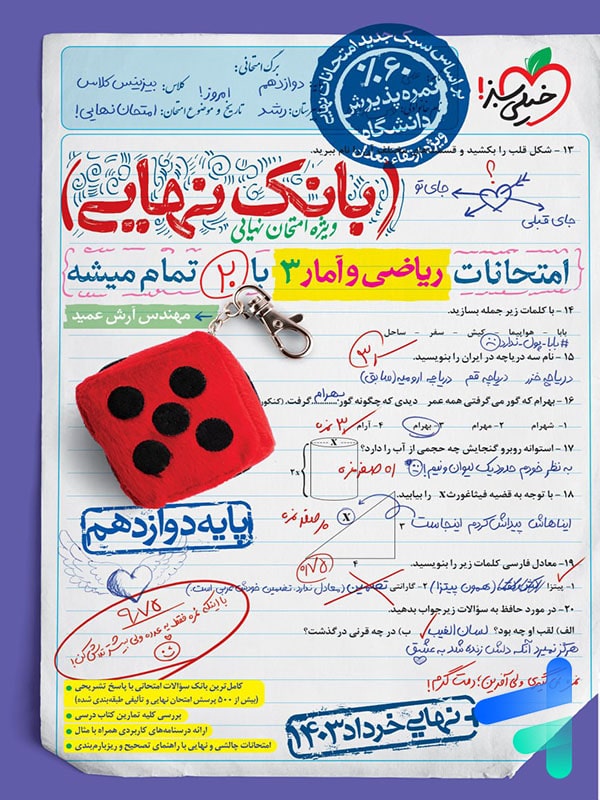 خیلی سبز!
براساس سبک جدید امتحانات نهایی
٪۶۰
نمره پذیرش
دانشگاه
ویژه ارتقاء معدل
برگ امتحانی:
دوازدهم
کلاس: بیزینس کلاس
امروز!
تاریخ و موضوع امتحان: امتحان نهایی!
رشد
۱۳- شکل قلب را بکشید و
را نام ببرید.
؟
جای تو
جای قبلی
(بانک نهایی)
ویژه امتحان نهایی
{امتحانات ریاضی و آمار ۳ با ۲۰ تمام میشه}
مهندس آرش عمید
۱۴- با کلمات زیر جمله بسازید.
بابا - هواپیما - کیش - سفر - ساحل
#بابا-پول-ندارد
۱۵- نام سه دریاچه در ایران را بنویسید.
دریاچه خزر دریاچه قم دریاچه ارومیه (سابق)
۱۶- بهرام که گور می‌گرفتی همه عمر دیدی که چگونه گور بهرام گرفت. (کنکور
۱- شهرام ۲- مهرام ۳- بهرام ۴- آرام
۱۷- استوانه روبرو گنجایش چه حجمی از آب را دارد؟
به نظر خودم حدوداً یک لیوان و نیم!
X
2x
۱۸- با توجه به قضیه فیثاغورث X را بیابید.
ایناهاش پیداش کردم اینجاست
X
۳
۴
۰/۷۵
پایه دوازدهم
۱۹- معادل فارسی کلمات زیر را بنویسید.
۱- پیتزا (همون پیتزا) ۲- گارانتی تضمین (معادل ندارد، تضمین خودش عربی است.)
۲۰- در مورد حافظ به سؤالات زیر جواب بدهید.
الف) لقب او چه بود؟ لسان الغیب ب) در چه قرنی درگذشت؟
هرگز نمیرد آنکه دلش زنده شد به عشق
۹/۷۵
با اینکه نمره فقط یه عدده ولی بیشتر تلاش کن!
ولی آفرین؛ دمت گرم!
کامل‌ترین بانک سؤالات امتحانی با پاسخ تشریحی
(بیش از ۵۰۰ پرسش امتحان نهایی و تألیفی طبقه‌بندی شده)
بررسی کلیه تمارین کتاب درسی
ارائه درسنامه‌های کاربردی همراه با مثال
امتحانات چالشی و نهایی با راهنمای تصحیح و ریزبارم‌بندی
+ نهایی خرداد ۱۴۰۳